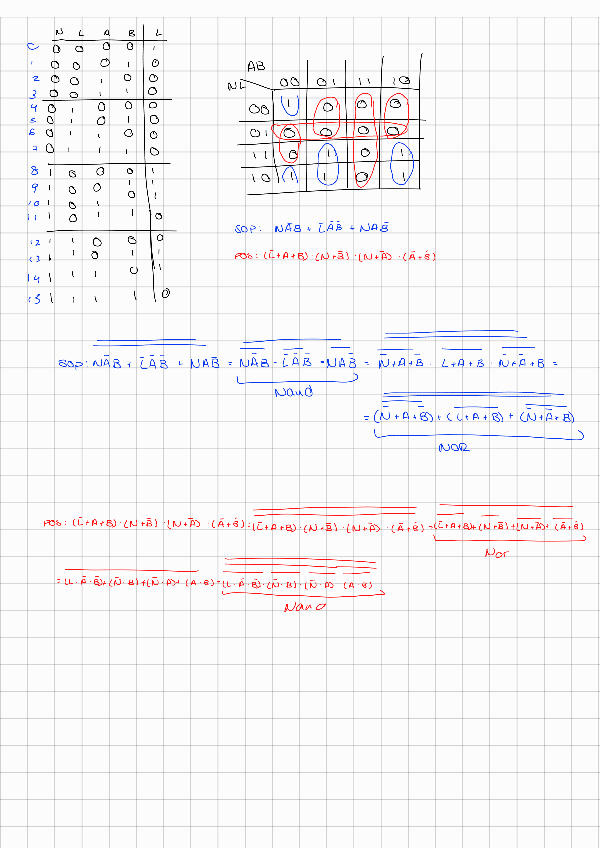 N L A B L
0 0 0 0 0 1
1 0 0 0 1 0
2 0 0 1 0 0
3 0 0 1 1 0
4 0 1 0 0 0
5 0 1 0 1 0
6 0 1 1 0 0
7 0 1 1 1 0
8 1 0 0 0 1
9 1 0 0 1 1
10 1 0 1 0 1
11 1 0 1 1 0
12 1 1 0 0 0
13 1 1 0 1 1
14 1 1 1 0 1
15 1 1 1 1 0
AB
NL 00 01 11 10
00 1 0 0 0
01 0 0 0 0
11 0 1 0 1
10 1 1 0 1
SOP: NA̅B + L̅A̅B̅ + NAB̅
POS: (L̅+A+B)·(N+B̅)·(N+A̅)·(A̅+B̅)
SOP: NA̅B + L̅A̅B̅ + NAB̅ = NA̅B · L̅A̅B̅ · NAB̅ = N̅+A+B̅ · L+A+B · N̅+A̅+B =
Nand
= (N̅+A+B̅) + (L+A+B) + (N̅+A̅+B)
NOR
POS: (L̅+A+B)·(N+B̅)·(N+A̅)·(A̅+B̅) = (L̅+A+B)·(N+B̅)·(N+A̅)·(A̅+B̅) = (L̅+A+B)+(N+B̅)+(N+A̅)+(A̅+B̅)
Nor
= (L·A̅·B̅)+(N̅·B)+(N̅·A)+(A·B) = (L·A̅·B̅)·(N̅·B)·(N̅·A)·(A·B)
Nand